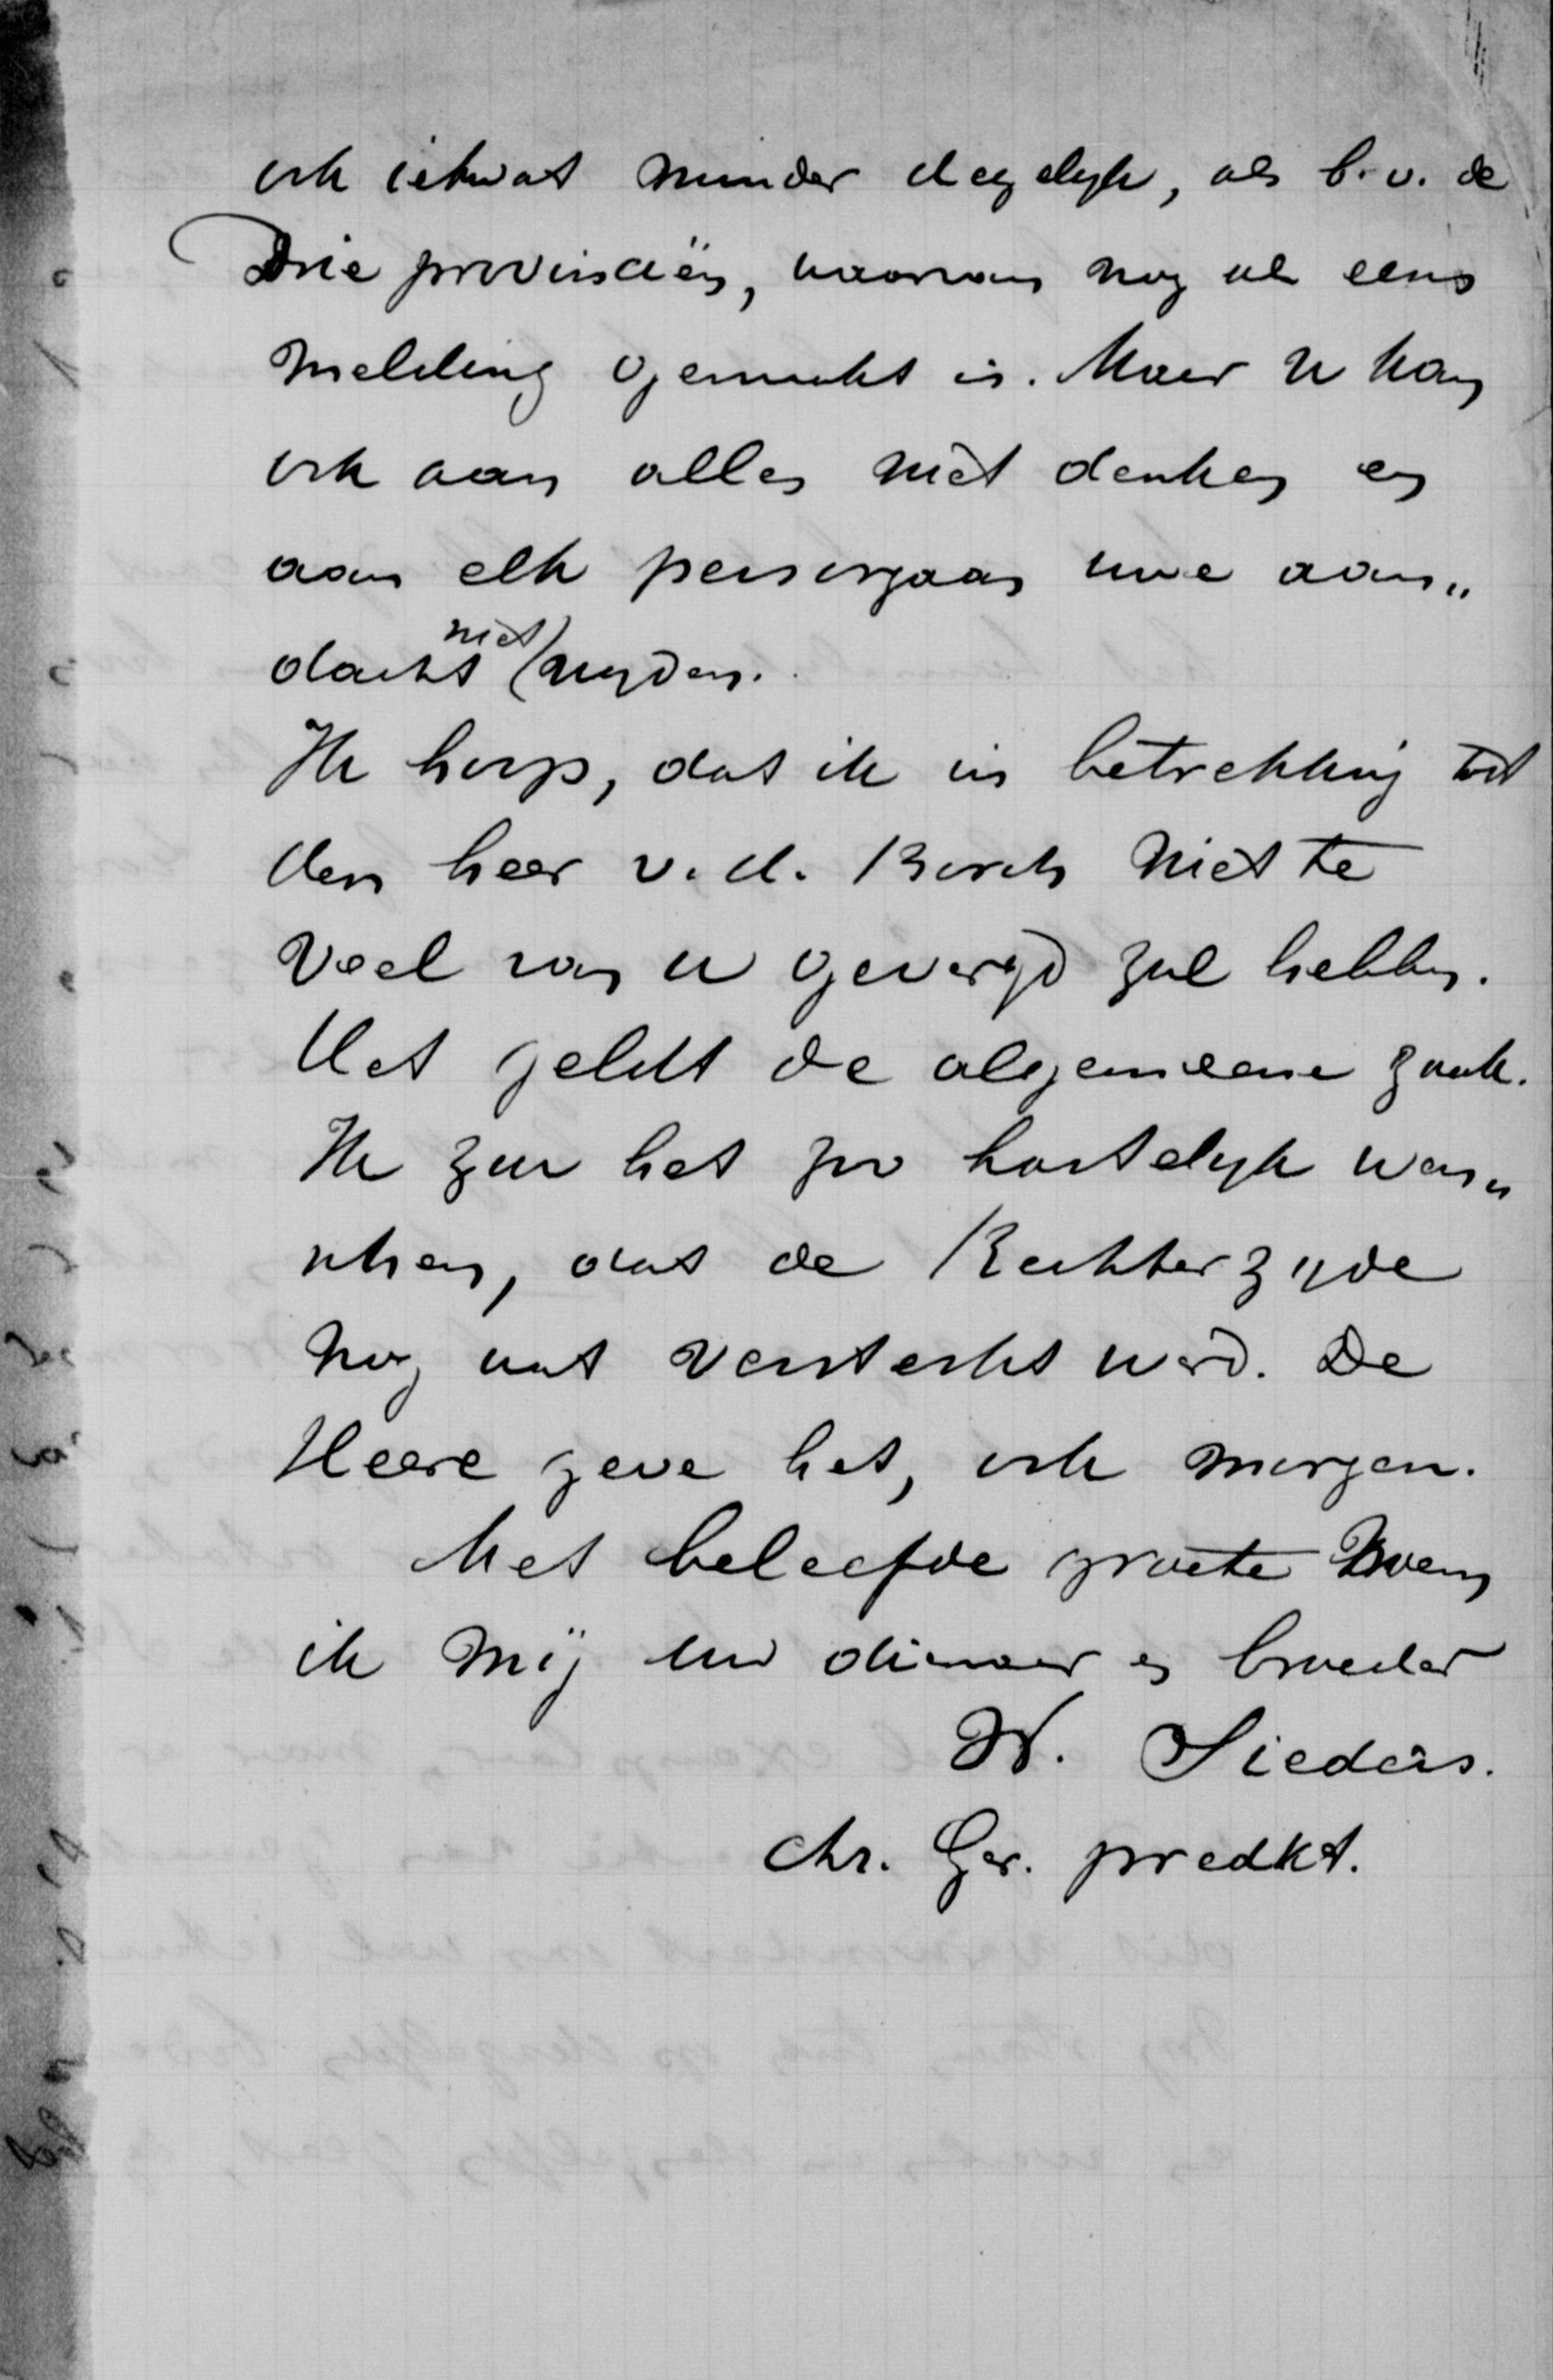 ook ietwat minder degelyk, als b.v. de
Drie provinciën, waarvan nog al eens
melding gemaakt is. Maar U kan
ook aan alles niet denken en
aan elk persorgaan uwe aan„
dacht niet wyden.
Ik hoop, dat ik in betrekking tot
den heer v. d. Borch niet te
veel van u gevergd zal hebben.
Het geldt de algemeene zaak.
Ik zou het zoo hartelyk wen„
schen, dat de Rechterzyde
nog wat versterkt werd. De
Heere geve het, ook morgen.
Met beleefde groete noem
ik mij uw dienaar en broeder
W. Sieders.
chr. Ger. predkt.